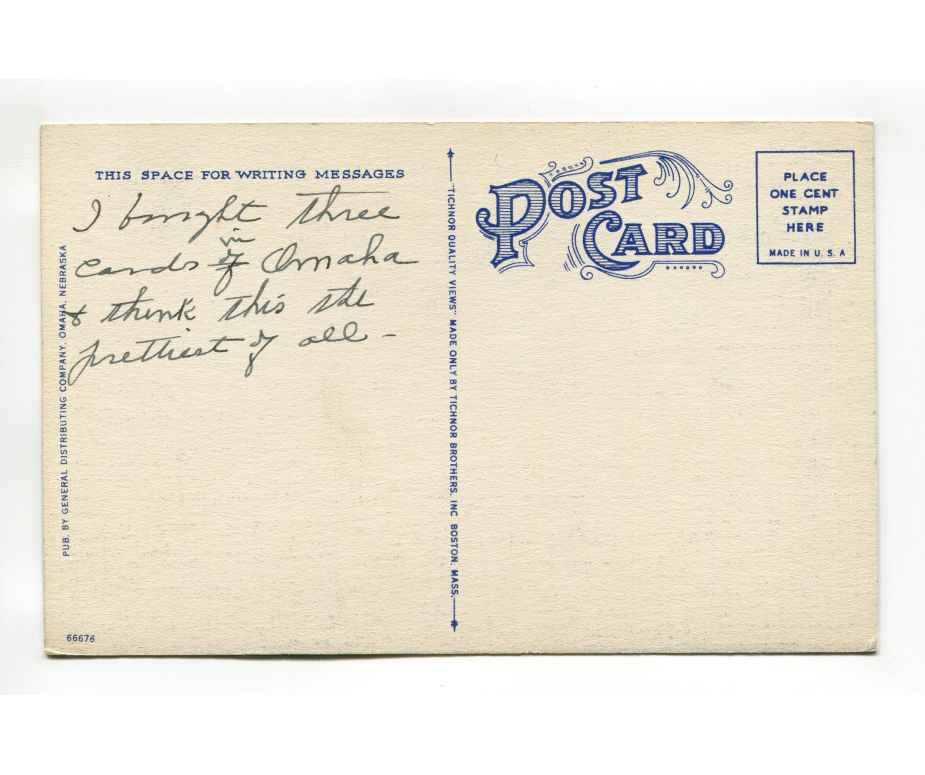 THIS SPACE FOR WRITING MESSAGES
I bought three
in
cards of Omaha
& think this the
prettiest of all -
PUB. BY GENERAL DISTRIBUTING COMPANY, OMAHA, NEBRASKA
66676
"TICHNOR QUALITY VIEWS" MADE ONLY BY TICHNOR BROTHERS, INC BOSTON, MASS.
POST
CARD
PLACE
ONE CENT
STAMP
HERE
MADE IN U. S. A